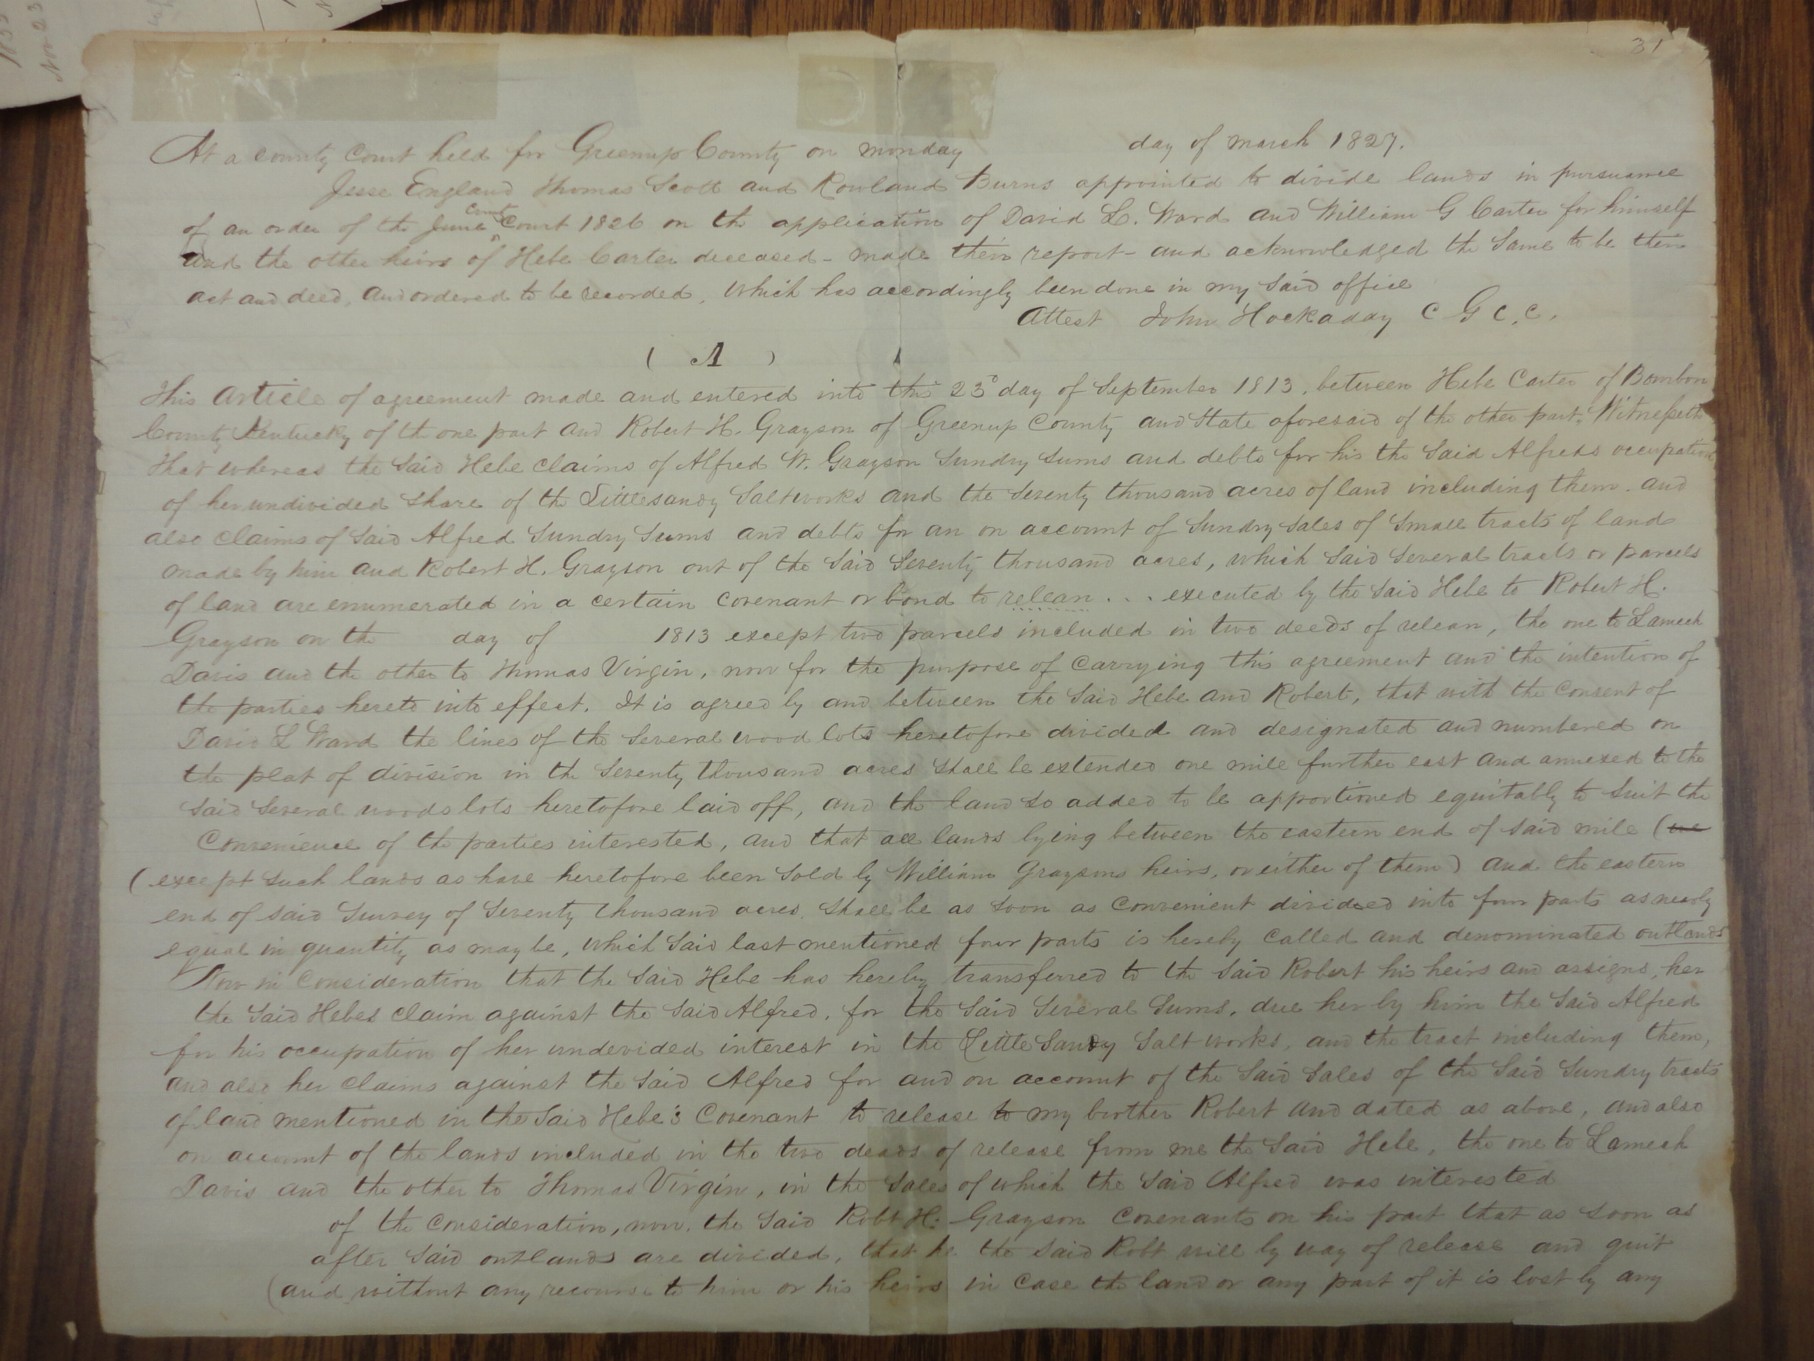 31
At a county court held for Greenup County on monday day of march 1827.
Jesse England Thomas Scott and Rowland Burns appointed to divide lands in pursuance
of an order of the June County Court 1826 on the application of David L. Ward and William G Carter for himself
and the other heirs of Hebe Carter deceased - made their report - and acknowledged the same to be their
act and deed, and ordered to be recorded, which has accordingly been done in my said office
Attest John Hockaday C G C. C.
( A )
This article of agreement made and entered into this 23d day of September 1813. between Hebe Carter of Bourbon
County Kentucky of th one part and Robert H. Grayson of Greenup County and State aforesaid of the other part. Witnesseth
That whereas the said Hebe claims of Alfred W. Grayson sundry sums and debts for his the said Alfreds occupation
of her undivided share of the Littlesandy Saltworks and the seventy thousand acres of land including them. and
also claims of said Alfred sundry sums and debts for an on account of sundry sales of small tracts of land
made by him and Robert H. Grayson out of the said seventy thousand acres, which said several tracts or parcels
of land are enumerated in a certain covenant or bond to relean . . . executed by the said Hebe to Robert H.
Grayson on the day of 1813 except two parcels included in two deeds of relean, the one to Lamech
Davis and the other to Thomas Virgin, now for the purpose of carrying this agreement and the intention of
the parties hereto into effect. It is agreed by and between the said Hebe and Robert, that with the consent of
David L Ward the lines of the several wood lots heretofore divided and designated and numbered on
the plat of division in the seventy thousand acres shall be extended one mile further east and annexed to the
said several woods lots heretofore laid off, and the land so added to be apportioned equitably to suit the
convenience of the parties interested, and that all lands lying between the eastern end of said mile (
(except such lands as have heretofore been sold by William Graysons heirs, or either of them) and the eastern
end of said survey of seventy thousand acres shall be as soon as convenient divided into four parts as nearly
equal in quantity as may be, which said last mentioned four parts is hereby called and denominated outlands
Now in consideration that the said Hebe has hereby transferred to the said Robert his heirs and assigns, her
the said Hebes claim against the said Alfred, for the said several sums, due her by him the said Alfred
for his occupation of her undevided interest in the Little Sandy Salt works, and the tract including them,
and also her claims against the said Alfred for and on account of the said sales of the said sundry tracts
of land mentioned in the said Hebe's covenant to release to my brother Robert and dated as above, and also
on account of the lands included in the two deeds of release from me the said Hebe, the one to Lamech
Davis and the other to Thomas Virgin, in the sales of which the said Alfred was interested
of the consideration, now. the said Robt H. Grayson covenants on his part that as soon as
after said outlands are divided, that he the said Robt will by way of release and quit
(and without any recourse to him or his heirs in case the land or any part of it is lost by any